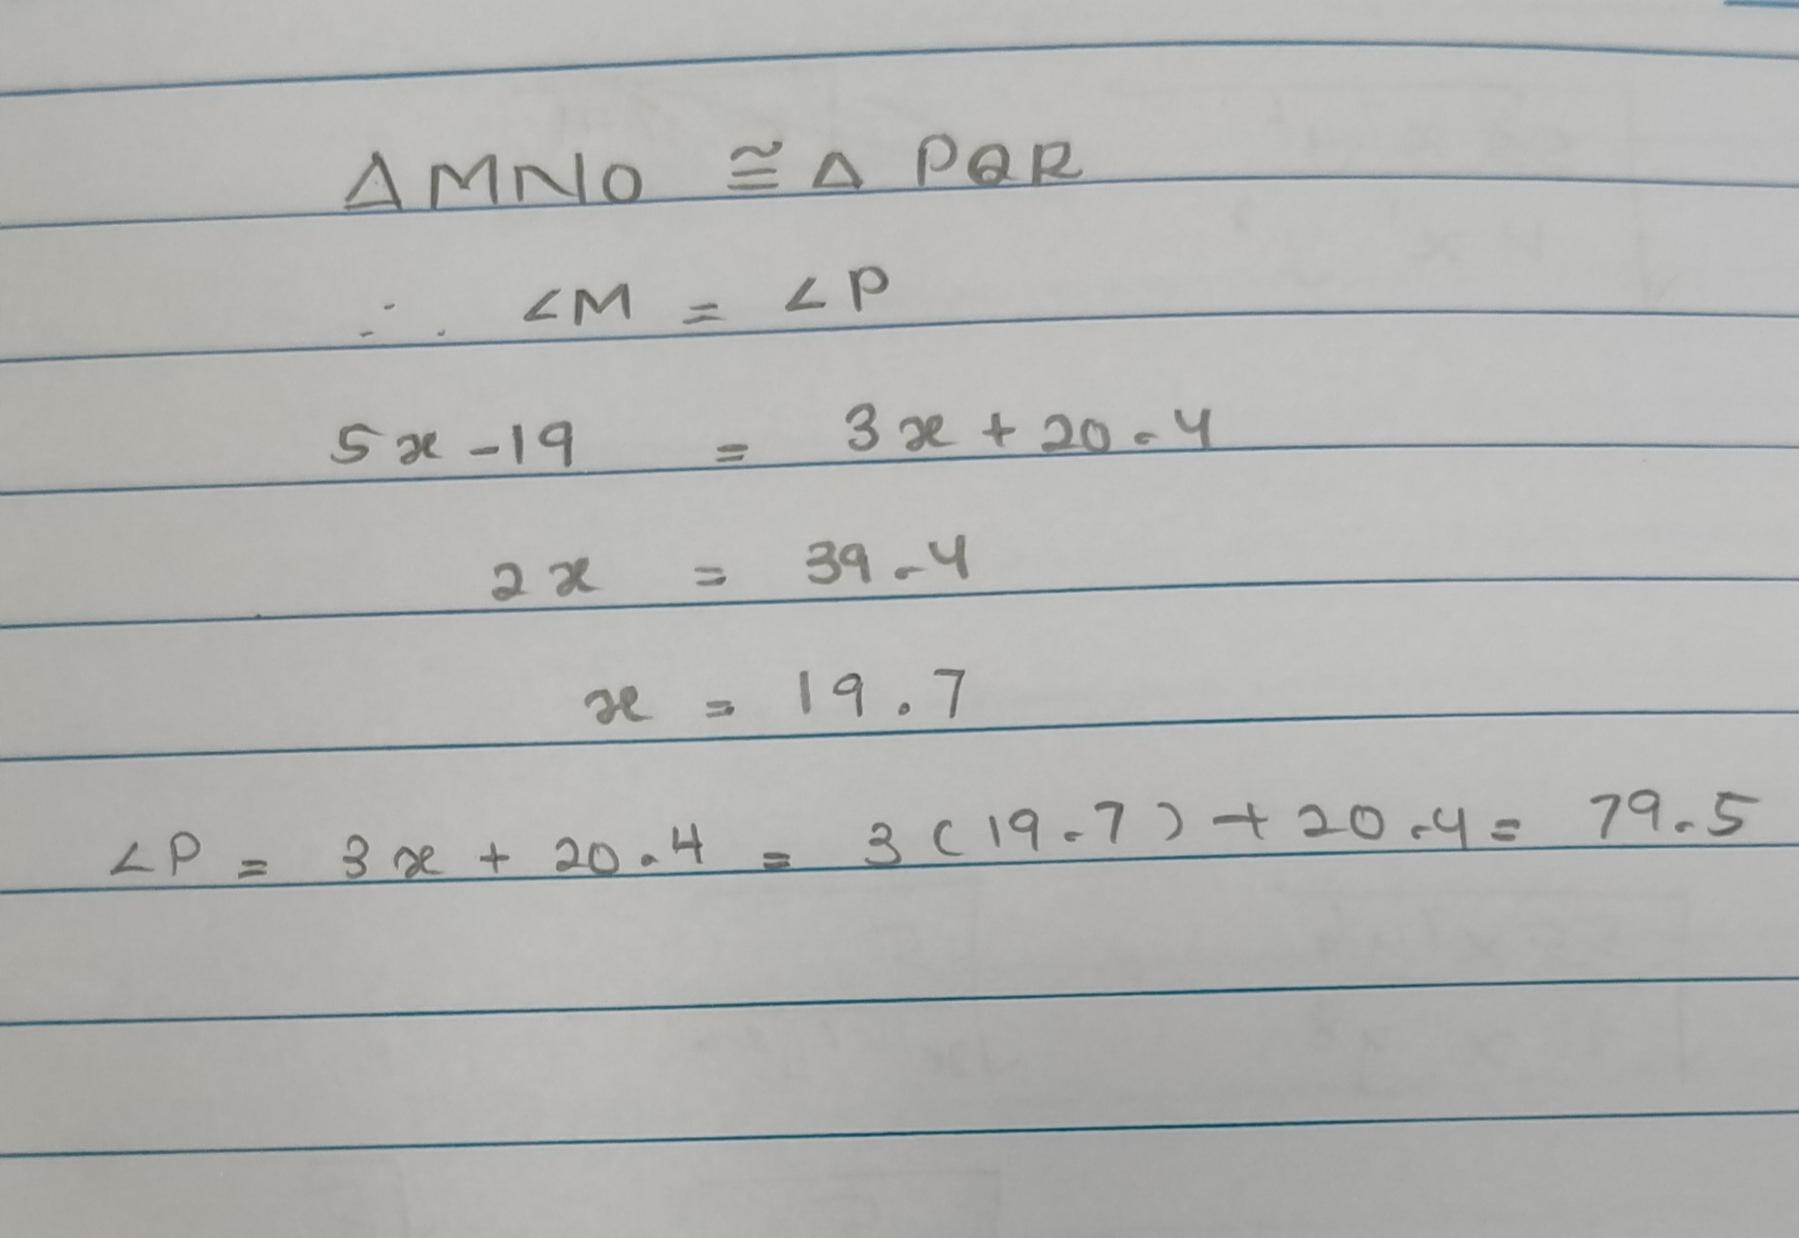 △MNO ≅ △ PQR
∴ ∠M = ∠P
5x - 19 = 3x + 20.4
2x = 39.4
x = 19.7
∠P = 3x + 20.4 = 3(19.7) + 20.4 = 79.5